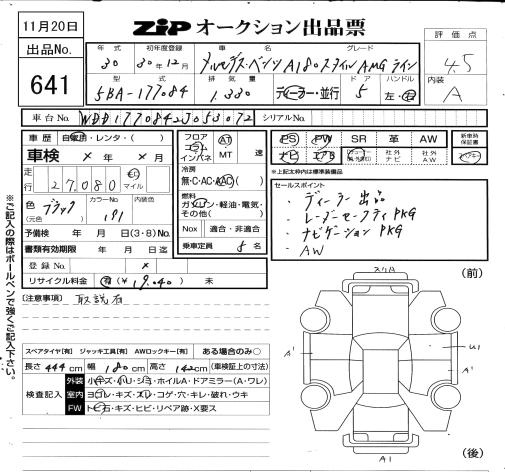 11月20日
ZIP オークション出品票
出品No.
641
年式
初年度登録
車名
グレード
30
30年12月
メルセデス・ベンツ A180スタイル AMGライン
型式
排気量
ドア
ハンドル
5BA-177084
1.330
ディーラー・並行
5
左・右
評価点
4.5
内装
A
車台No.
WDD1770842J053072
シリアルNo.
車歴
自家用・レンタ・( )
車検 × 年 × 月
走行
27,080
km
マイル
色
(元色)
ブラック
カラーNo.
191
内装色
予備検 年 月 日(3・8)No.
書類有効期限 年 月 日迄
登録No. ×
リサイクル料金 有(¥ 19.040) 未
フロア
コラム
インパネ
AT
MT 速
冷房
無・C・AC・AAC( )
燃料
ガソリン・軽油・電気・
その他( )
Nox 適合・非適合
乗車定員 5 名
PS PW SR 革 AW
ナビ エアB
社外
ナビ
社外
AW
新車時
保証書
※上記太枠内は標準装備品
セールスポイント
・ディーラー出品
・レーダーセーフティPKG
・ナビゲーションPKG
・AW
[注意事項] 取説有
スペアタイヤ[有] ジャッキ工具[有] AWロックキー[有] ある場合のみ○
長さ 444 cm 幅 180 cm 高さ 142 cm (車検証上の寸法)
検査記入
外装 小キズ・小U・シミ・ホイルA・ドアミラー(A・ワレ)
室内 ヨゴレ・キズ・スレ・コゲ・穴・キレ・破れ・ウキ
FW トビ石・キズ・ヒビ・リペア跡・X要ス
※ご記入の際はボールペンで強くご記入下さい。
(前)
スリA
A'
U1
A'
A1
(後)